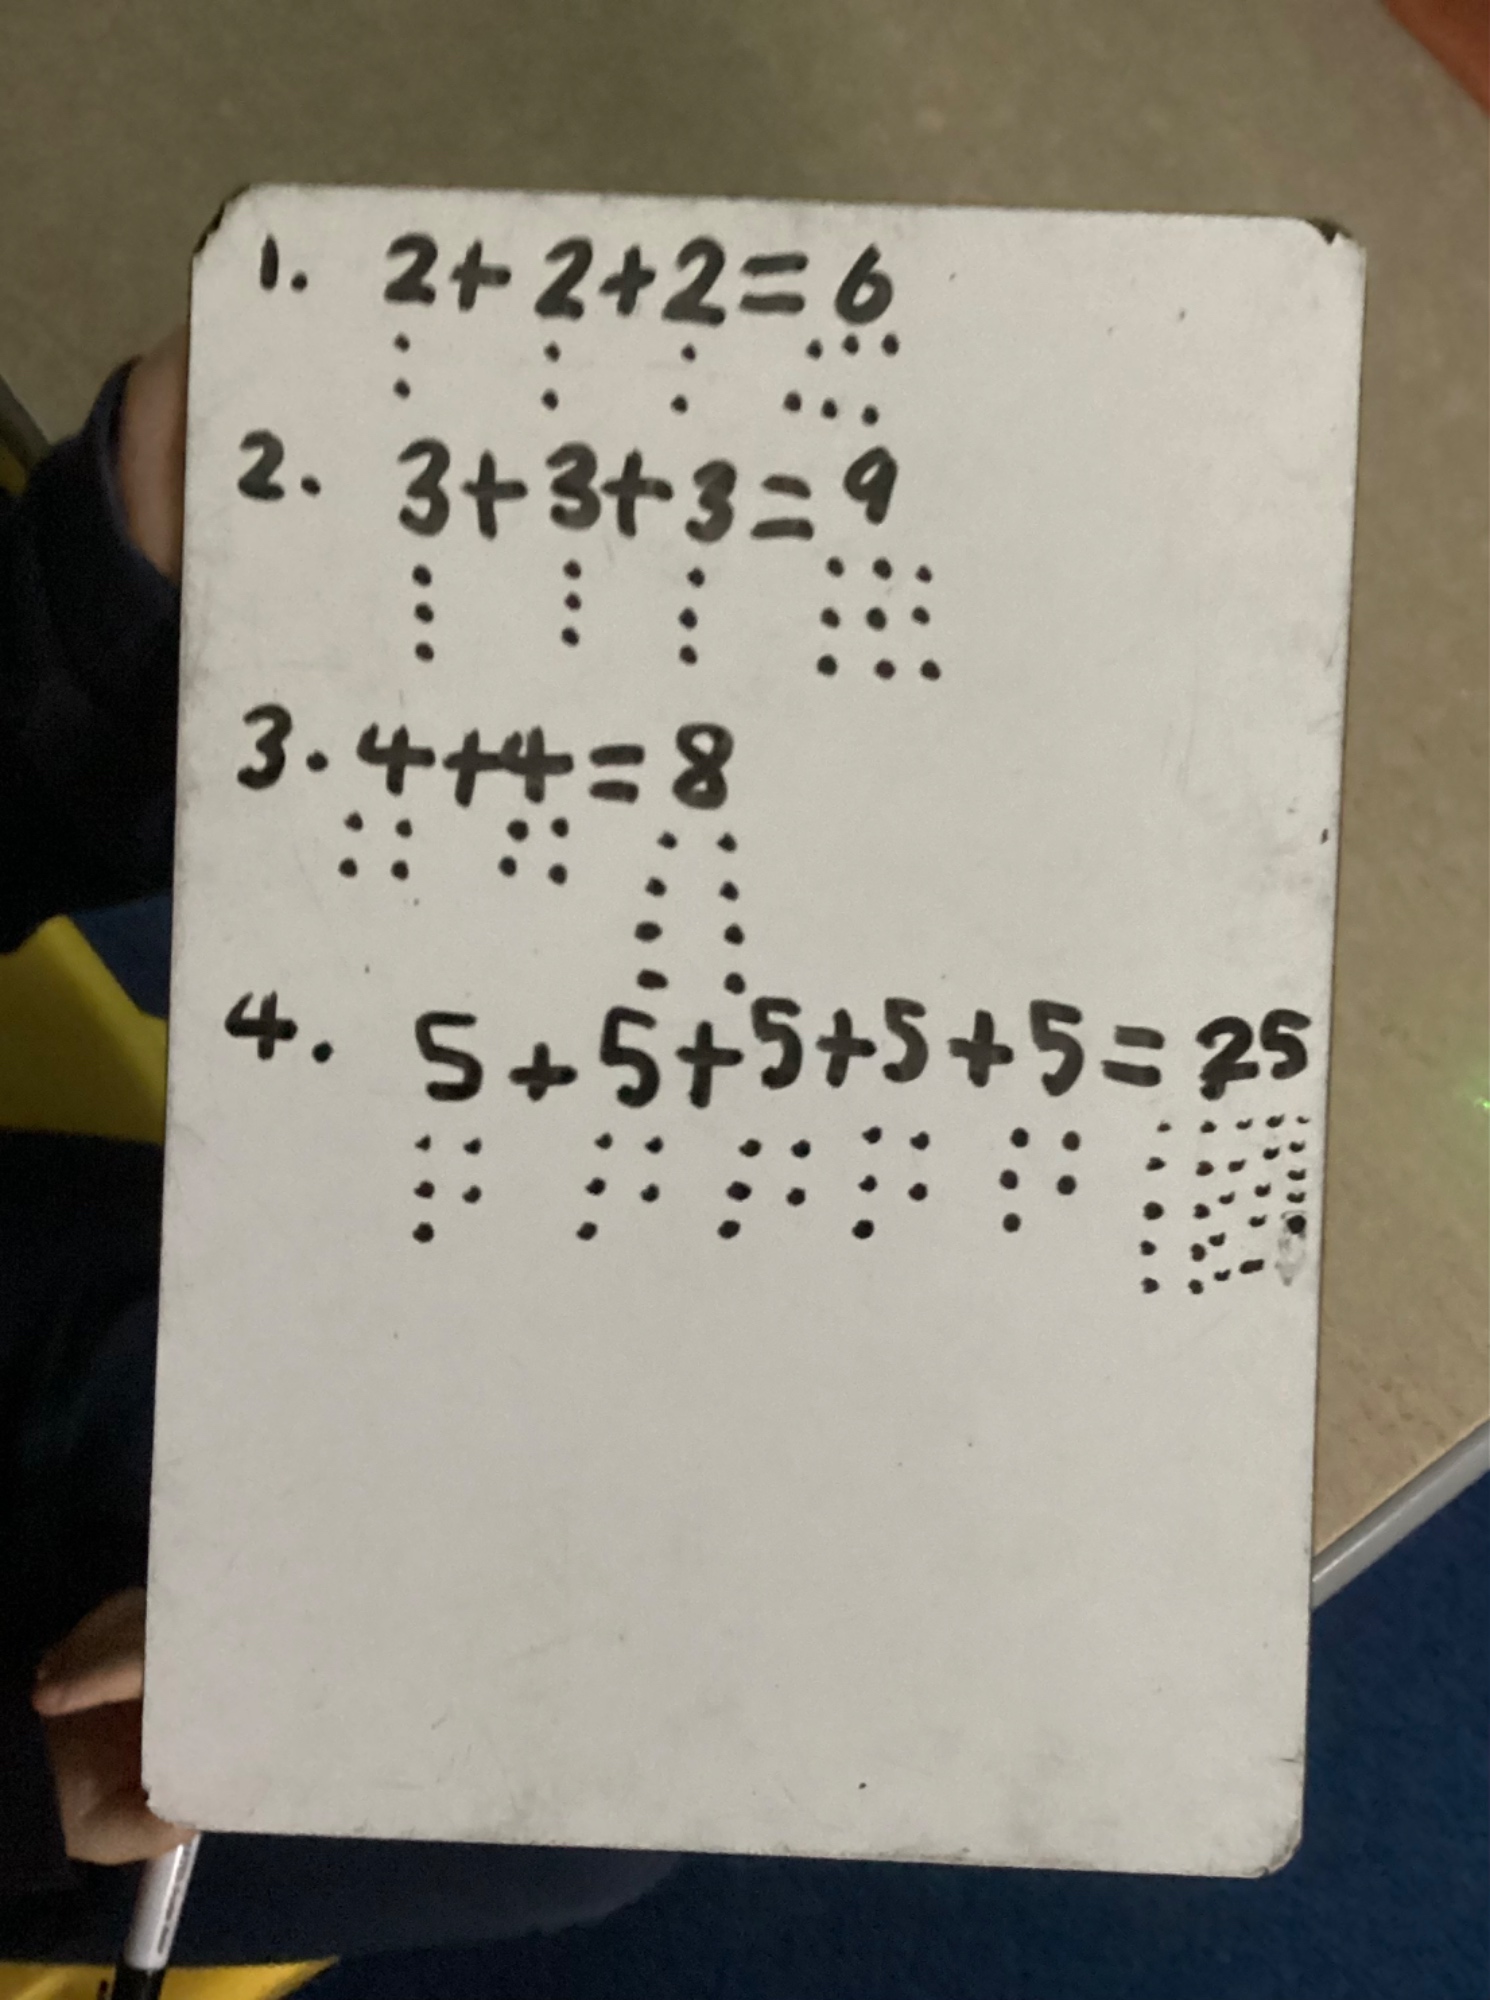 1. 2+2+2=6
2. 3+3+3=9
3. 4+4=8
4. 5+5+5+5+5=25